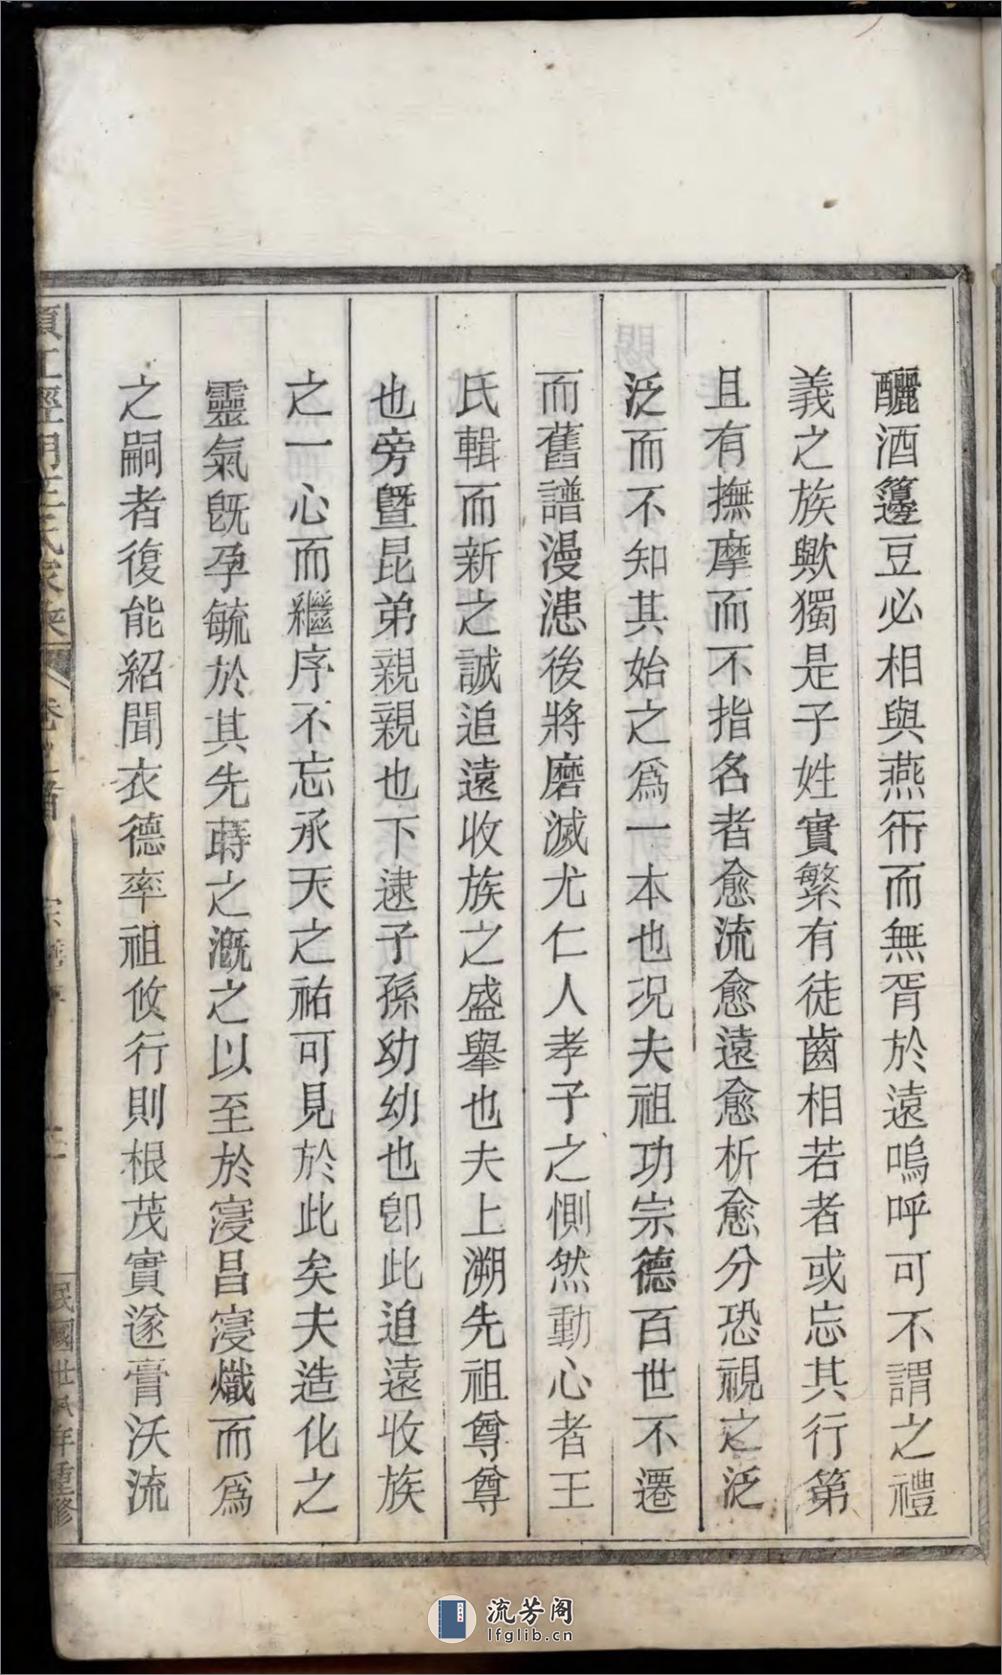 釃酒籩豆必相與燕衎而無胥於遠嗚呼可不謂之禮
義之族歟獨是子姓實繁有徒齒相若者或忘其行第
且有撫摩而不指名者愈流愈遠愈析愈分恐視之泛
泛而不知其始之爲一本也况夫祖功宗德百世不遷
而舊譜漫漶後將磨滅尤仁人孝子之惻然動心者王
氏輯而新之誠追遠收族之盛舉也夫上溯先祖尊尊
也旁暨昆弟親親也下逮子孫幼幼也卽此追遠收族
之一心而繼序不忘承天之祐可見於此矣夫造化之
靈氣旣孕毓於其先蒔之漑之以至於寖昌寖熾而爲
之嗣者復能紹聞衣德率祖攸行則根茂實遂膏沃流
王氏家乘 卷之首 宗譜序 民國卅八年重修
流芳阁
lfglib.cn